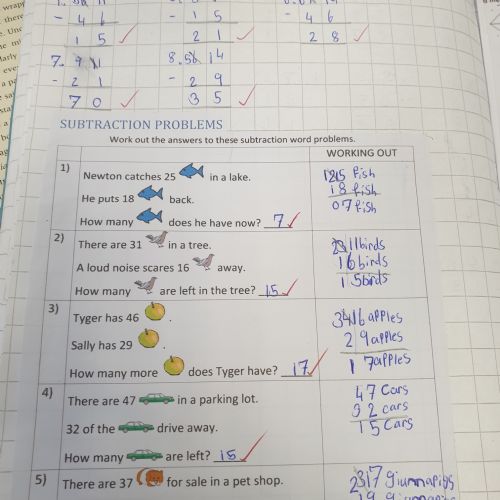 - 4 6
- 1 5
- 4 6
1 5
2 1
2 8
7.
8.
- 2 1
- 2 9
7 0
3 5
SUBTRACTION PROBLEMS
Work out the answers to these subtraction word problems.
WORKING OUT
1)
Newton catches 25 in a lake.
He puts 18 back.
How many does he have now? 7
fish
18 fish
07 fish
2)
There are 31 in a tree.
A loud noise scares 16 away.
How many are left in the tree? 15
birds
16 birds
15 birds
3)
Tyger has 46 .
Sally has 29 .
How many more does Tyger have? 17
apples
29 apples
17 apples
4)
There are 47 in a parking lot.
32 of the drive away.
How many are left? 15
47 Cars
32 cars
15 Cars
5)
There are 37 for sale in a pet shop.